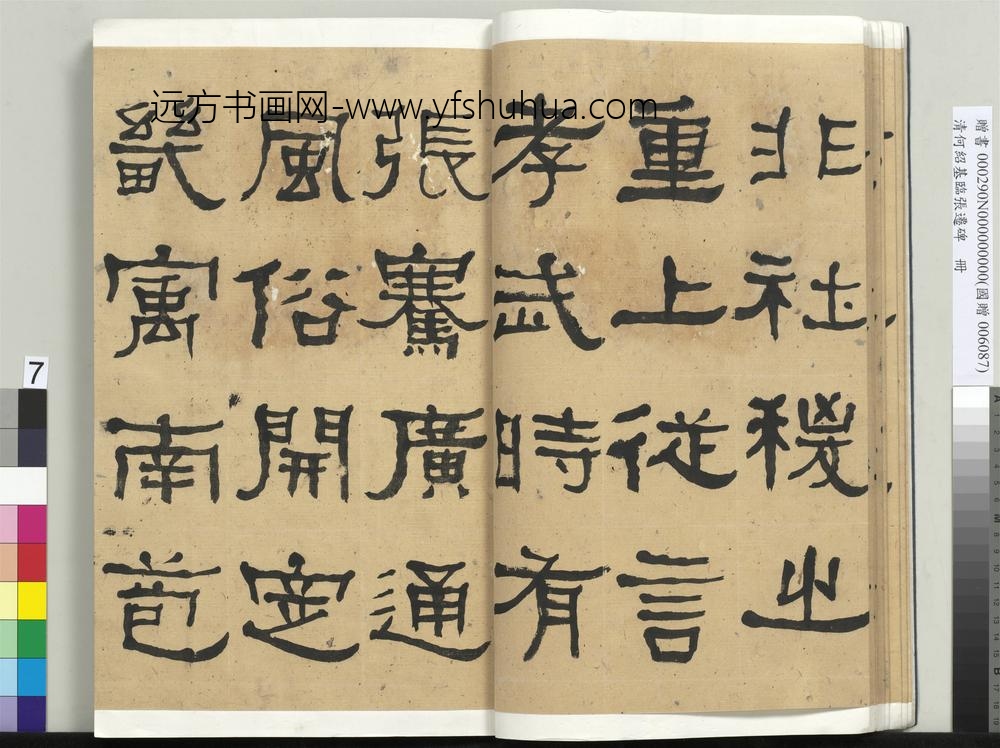 远方书画网-www.yfshuhua.com
非社稷之
重上從言
孝武時有
張騫廣通
風俗開定
畿寓南苞
贈書 000290N000000000(國贈 006087)
清何紹基臨張遷碑 冊
7